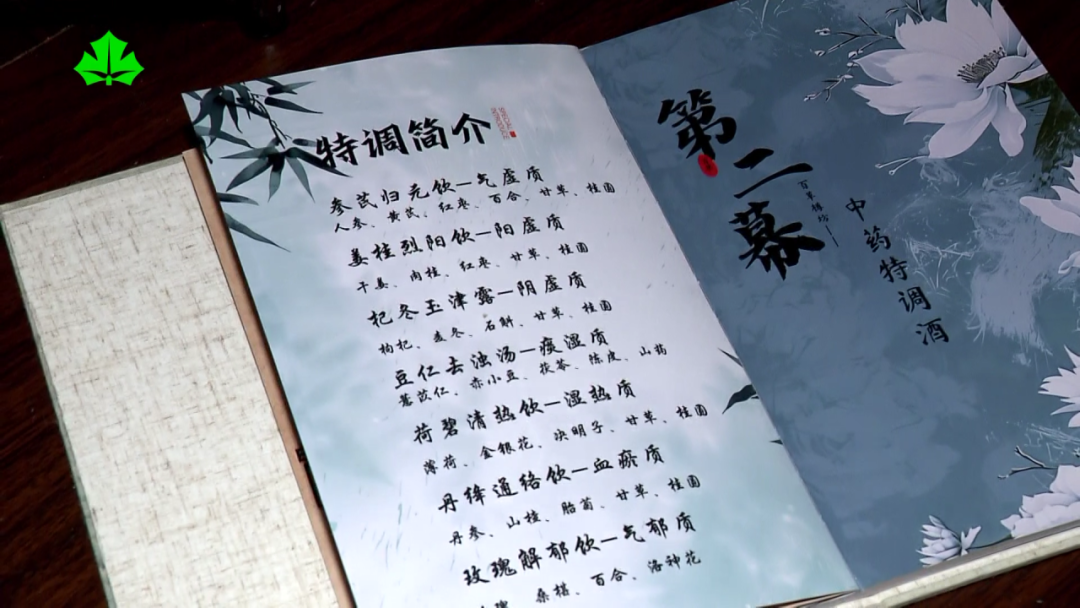 特调简介
参芪归元饮—气虚质
人参、黄芪、红枣、百合、甘草、桂圆
姜桂烈阳饮—阳虚质
干姜、肉桂、红枣、甘草、桂圆
杞冬玉津露—阴虚质
枸杞、麦冬、石斛、甘草、桂圆
豆仁去浊汤—痰湿质
薏苡仁、赤小豆、茯苓、陈皮、山药
荷碧清热饮—湿热质
薄荷、金银花、决明子、甘草、桂圆
丹绛通络饮—血瘀质
丹参、山楂、胎菊、甘草、桂圆
玫瑰解郁饮—气郁质
桑椹、百合、洛神花
第二幕
中药特调酒